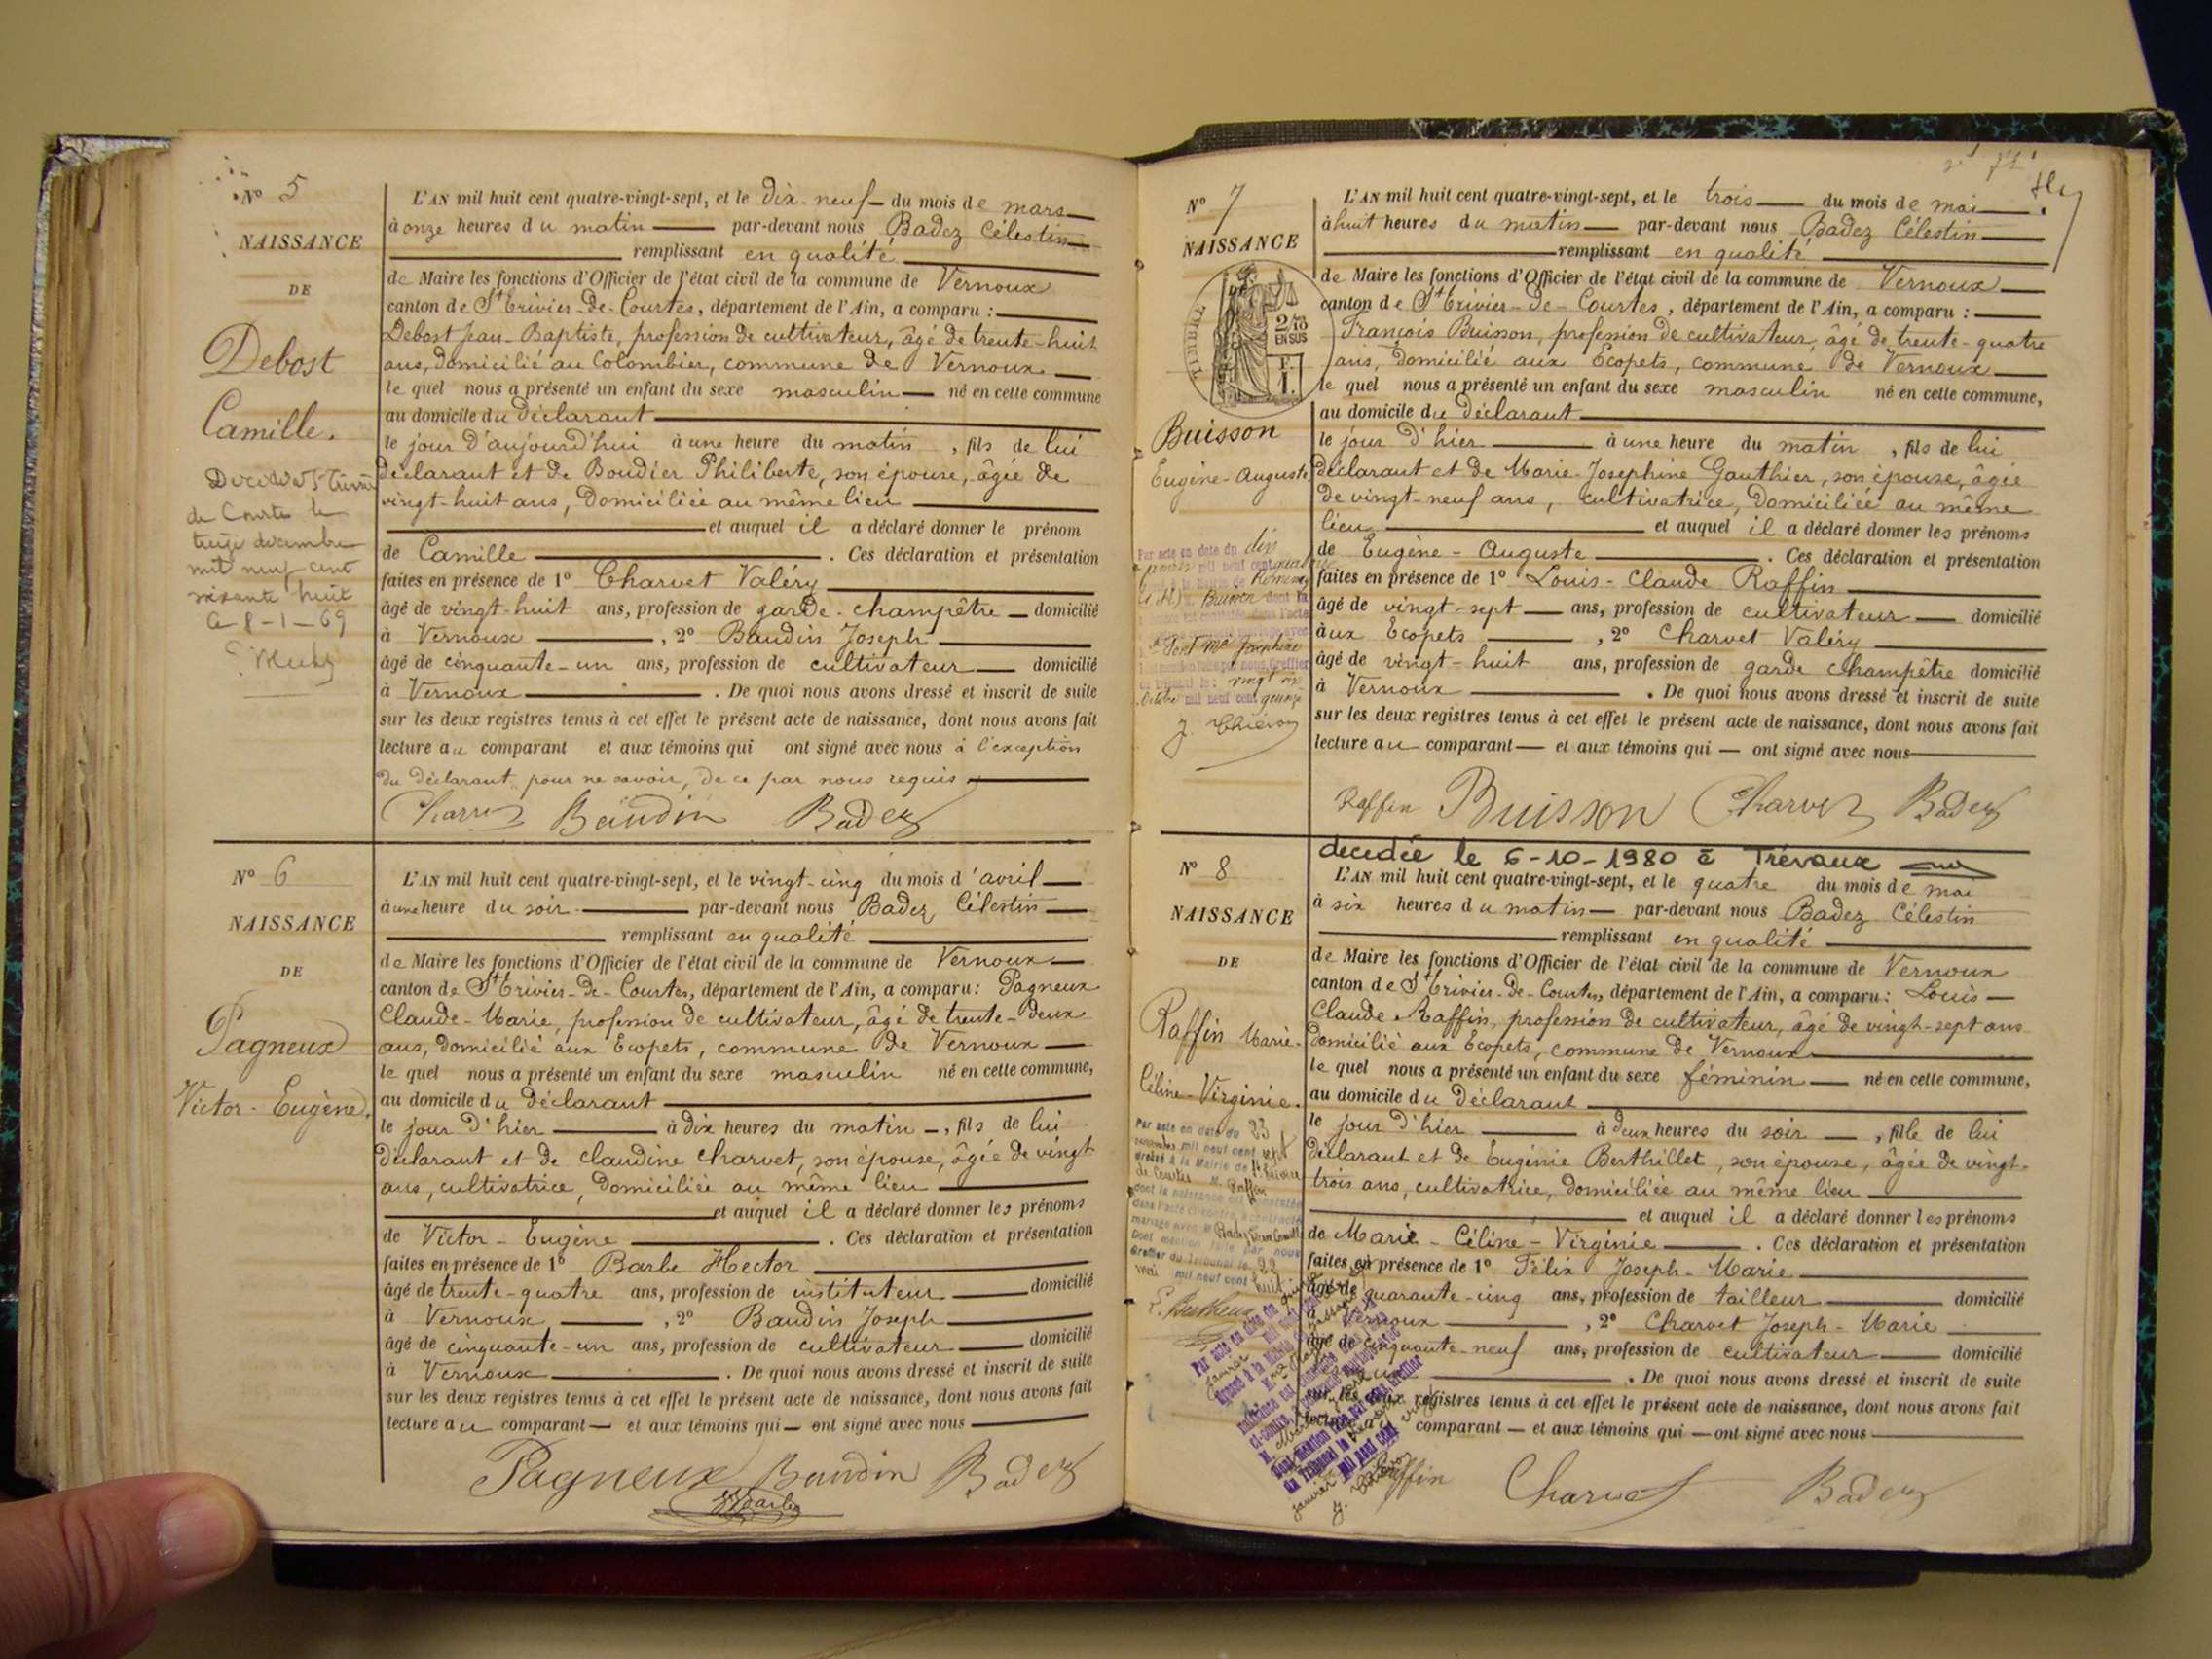 Nº 5
NAISSANCE
DE
Debost
Camille.
de Courtes le
treize décembre
mil neuf cent
soixante huit
8-1-69
L'AN mil huit cent quatre-vingt-sept, et le dix-neuf du mois de mars
à onze heures du matin par-devant nous Badez Célestin
remplissant en qualité
de Maire les fonctions d'Officier de l'état civil de la commune de Vernoux
canton de St Trivier-de-Courtes, département de l'Ain, a comparu :
Debost Jean-Baptiste, profession de cultivateur, âgé de trente-huit
ans, domicilié au Colombier, commune de Vernoux
le quel nous a présenté un enfant du sexe masculin né en cette commune
au domicile du déclarant
le jour d'aujourd'hui à une heure du matin, fils de lui
déclarant et de Boudier Philiberte, son épouse, âgée de
vingt-huit ans, domiciliée au même lieu
et auquel il a déclaré donner le prénom
de Camille. Ces déclaration et présentation
faites en présence de 1º Charvet Valéry
âgé de vingt-huit ans, profession de garde-champêtre domicilié
à Vernoux, 2º Baudin Joseph
âgé de cinquante-un ans, profession de cultivateur domicilié
à Vernoux. De quoi nous avons dressé et inscrit de suite
sur les deux registres tenus à cet effet le présent acte de naissance, dont nous avons fait
lecture au comparant et aux témoins qui ont signé avec nous à l'exception
du déclarant pour ne savoir, de ce par nous requis
Charvet Baudin Badez
Nº 6
NAISSANCE
DE
Pagneux
Victor-Eugène.
L'AN mil huit cent quatre-vingt-sept, et le vingt-cinq du mois d'avril
à une heure du soir par-devant nous Badez Célestin
remplissant en qualité
de Maire les fonctions d'Officier de l'état civil de la commune de Vernoux
canton de St Trivier-de-Courtes, département de l'Ain, a comparu : Pagneux
Claude-Marie, profession de cultivateur, âgé de trente-deux
ans, domicilié aux Ecopets, commune de Vernoux
le quel nous a présenté un enfant du sexe masculin né en cette commune,
au domicile du déclarant
le jour d'hier à dix heures du matin, fils de lui
déclarant et de Claudine Charvet, son épouse, âgée de vingt
ans, cultivatrice, domiciliée au même lieu
et auquel il a déclaré donner les prénoms
de Victor-Eugène. Ces déclaration et présentation
faites en présence de 1º Barbe Hector
âgé de trente-quatre ans, profession de instituteur domicilié
à Vernoux, 2º Baudin Joseph
âgé de cinquante-un ans, profession de cultivateur domicilié
à Vernoux. De quoi nous avons dressé et inscrit de suite
sur les deux registres tenus à cet effet le présent acte de naissance, dont nous avons fait
lecture au comparant et aux témoins qui ont signé avec nous
Pagneux Baudin Badez
Barbe
Nº 7
NAISSANCE
2/10
EN SUS
Buisson
Eugène-Auguste
Par acte en date du dix
mil neuf cent
Buisson dont la
J. Thiéron
L'AN mil huit cent quatre-vingt-sept, et le trois du mois de mai
à huit heures du matin par-devant nous Badez Célestin
remplissant en qualité
de Maire les fonctions d'Officier de l'état civil de la commune de Vernoux
canton de St Trivier-de-Courtes, département de l'Ain, a comparu :
François Buisson, profession de cultivateur, âgé de trente-quatre
ans, domicilié aux Ecopets, commune de Vernoux
le quel nous a présenté un enfant du sexe masculin né en cette commune,
au domicile du déclarant
le jour d'hier à une heure du matin, fils de lui
déclarant et de Marie-Josephine Gauthier, son épouse, âgée
de vingt-neuf ans, cultivatrice, domiciliée au même
lieu et auquel il a déclaré donner les prénoms
de Eugène-Auguste. Ces déclaration et présentation
faites en présence de 1º Louis-Claude Raffin
âgé de vingt-sept ans, profession de cultivateur domicilié
aux Ecopets, 2º Charvet Valéry
âgé de vingt-huit ans, profession de garde champêtre domicilié
à Vernoux. De quoi nous avons dressé et inscrit de suite
sur les deux registres tenus à cet effet le présent acte de naissance, dont nous avons fait
lecture au comparant et aux témoins qui ont signé avec nous
Raffin Buisson Charvet Badez
décédée le 6-10-1980 à Trévoux
Nº 8
NAISSANCE
DE
Raffin Marie-
Céline-Virginie.
Par acte en date du 23
mil neuf cent sept
dressé à la Mairie de St Trivier
de Courtes M. Raffin
dont la naissance est constatée
dans l'acte ci-contre, a contracté
mariage avec
Dont mention faite par nous
Greffier du Tribunal le 22
mai mil neuf cent huit
L'AN mil huit cent quatre-vingt-sept, et le quatre du mois de mai
à six heures du matin par-devant nous Badez Célestin
remplissant en qualité
de Maire les fonctions d'Officier de l'état civil de la commune de Vernoux
canton de St Trivier-de-Courtes, département de l'Ain, a comparu : Louis-
Claude Raffin, profession de cultivateur, âgé de vingt-sept ans
domicilié aux Ecopets, commune de Vernoux
le quel nous a présenté un enfant du sexe féminin né en cette commune,
au domicile du déclarant
le jour d'hier à deux heures du soir, fille de lui
déclarant et de Eugénie Berthillet, son épouse, âgée de vingt-
trois ans, cultivatrice, domiciliée au même lieu
et auquel il a déclaré donner les prénoms
de Marie-Céline-Virginie. Ces déclaration et présentation
faites en présence de 1º Félix Joseph-Marie
âgé de quarante-cinq ans, profession de tailleur domicilié
à Vernoux, 2º Charvet Joseph-Marie
âgé de cinquante-neuf ans, profession de cultivateur domicilié
. De quoi nous avons dressé et inscrit de suite
sur les deux registres tenus à cet effet le présent acte de naissance, dont nous avons fait
comparant et aux témoins qui ont signé avec nous
Raffin Charvet Badez